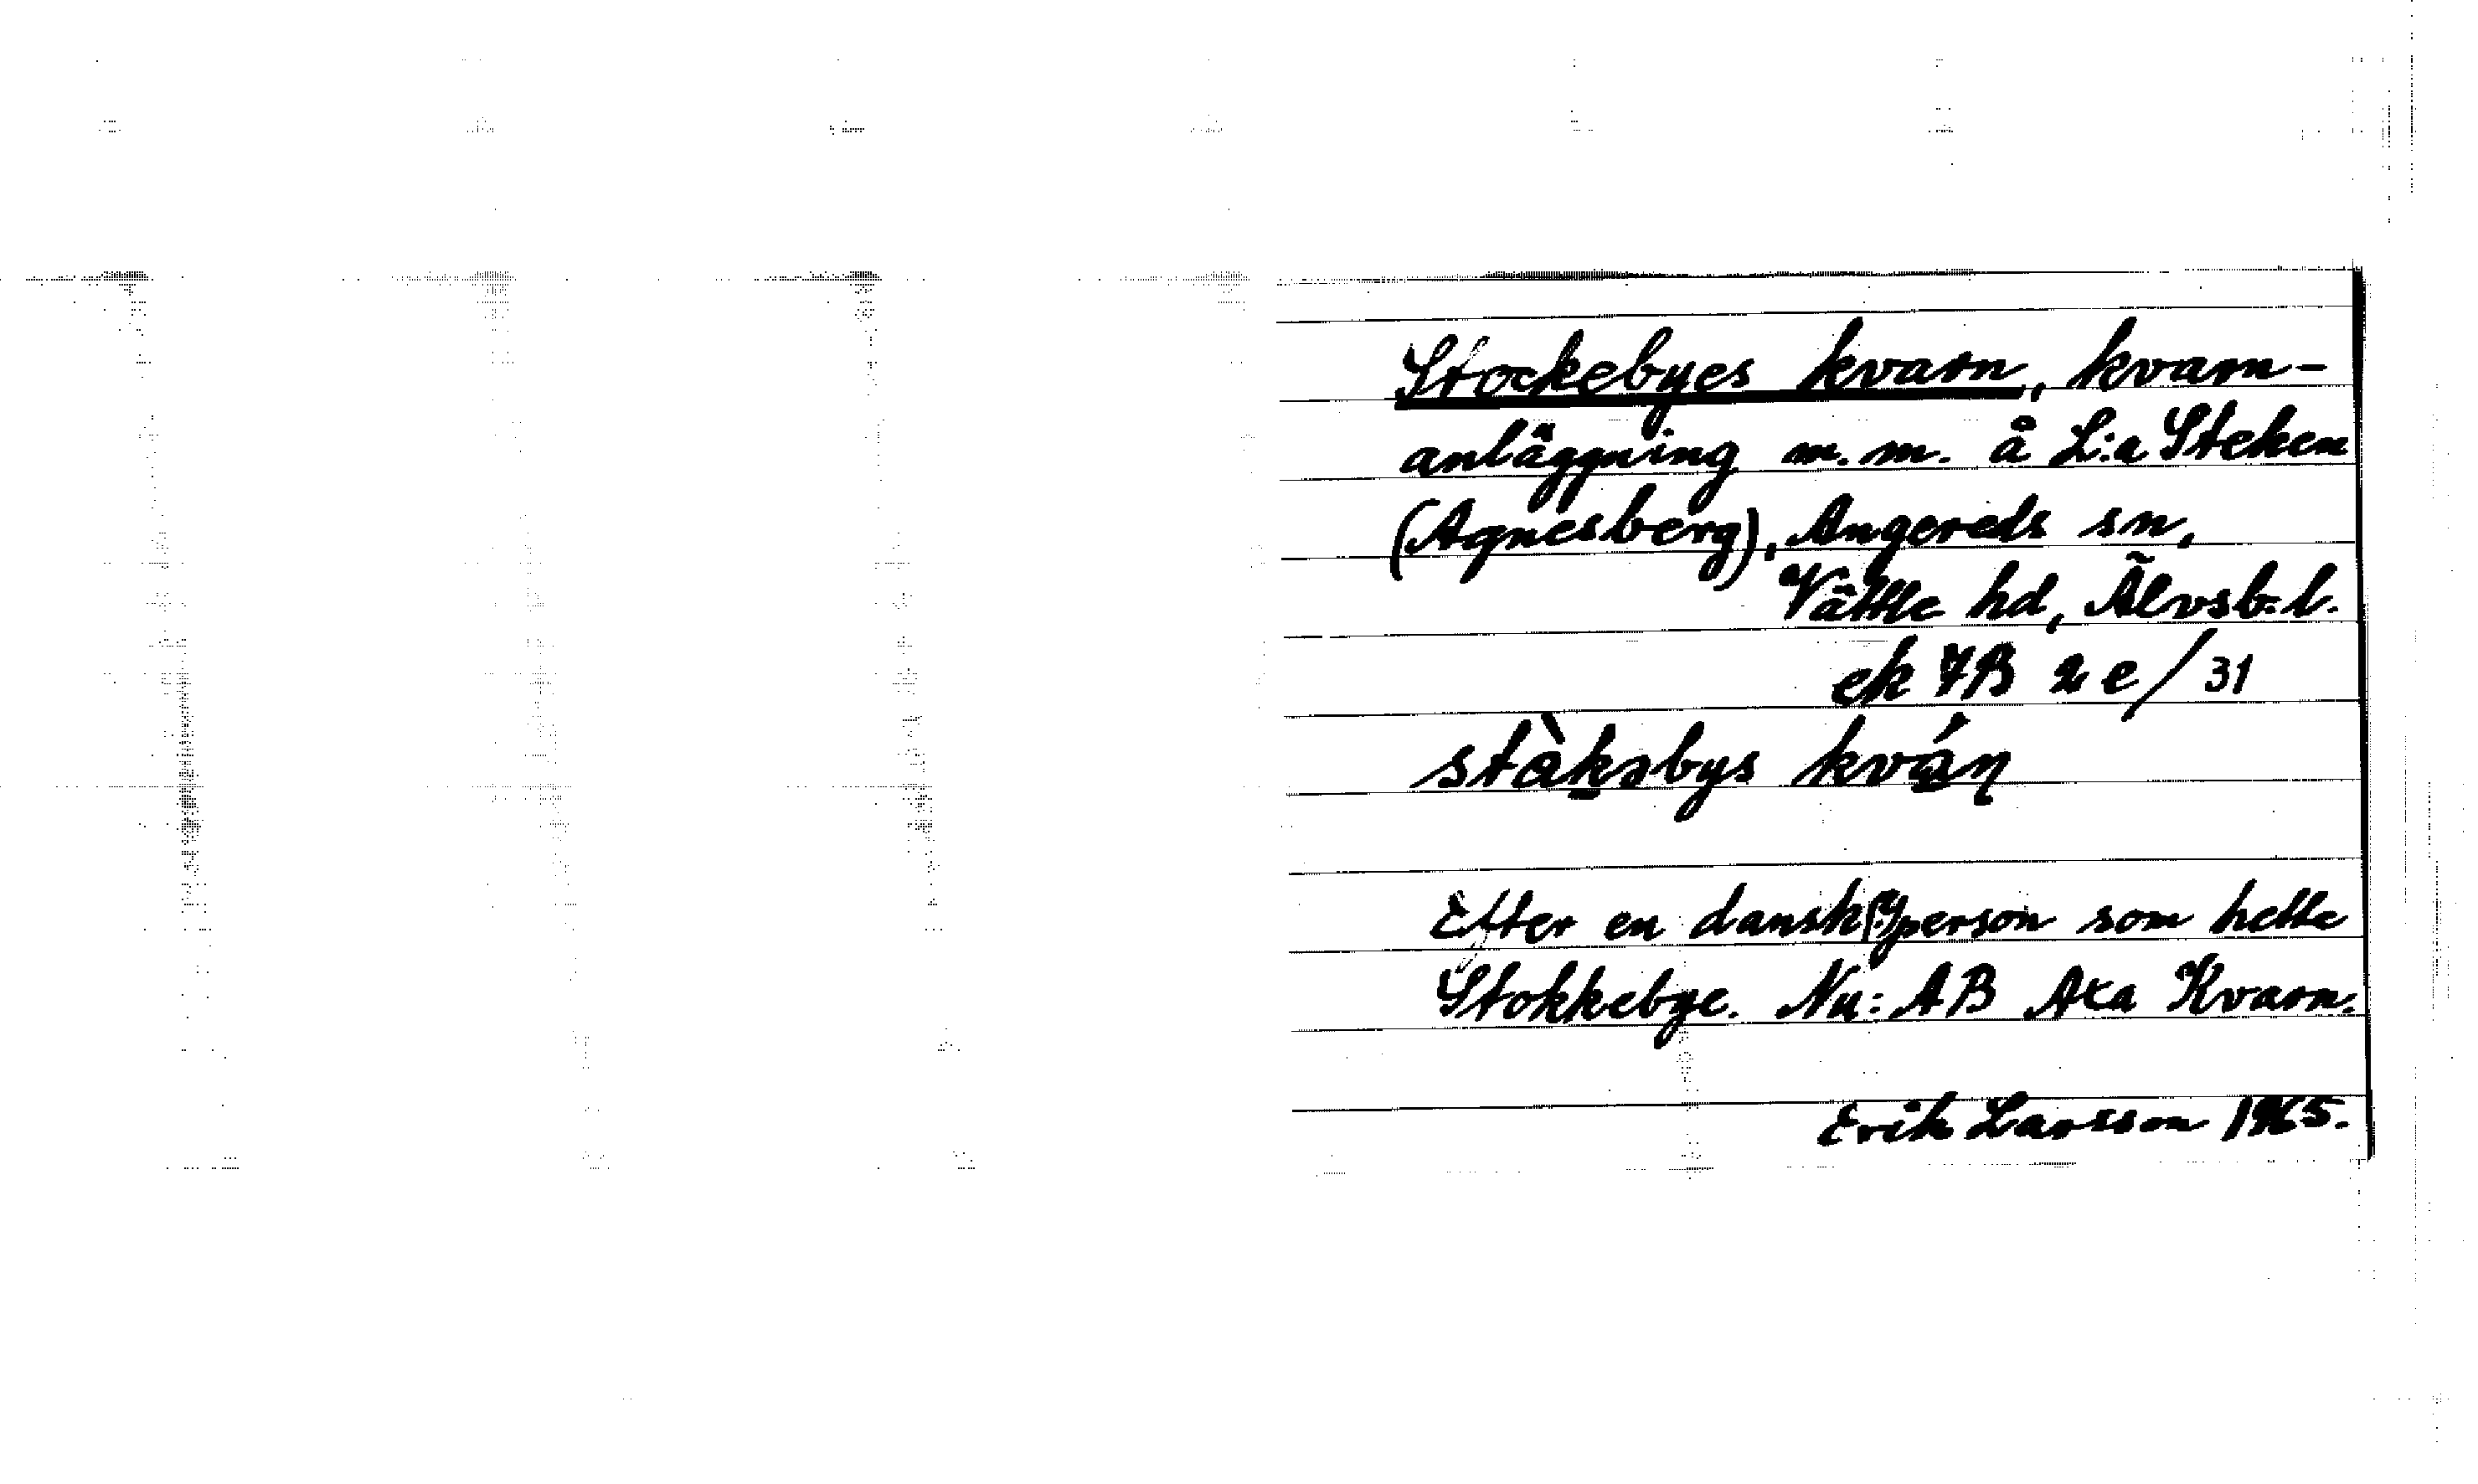 Stockebyes kvarn, kvarn-
anläggning m.m. å L:a Steken
(Agnesberg), Angereds sn,
Vättle hd, Älvsb. l.
ek 7B 2e/31
stàkəbys kván
Efter en dansk(?)person som hette
Stokkebye. Nu: AB Axa Kvarn.
Erik Larsson 1965.